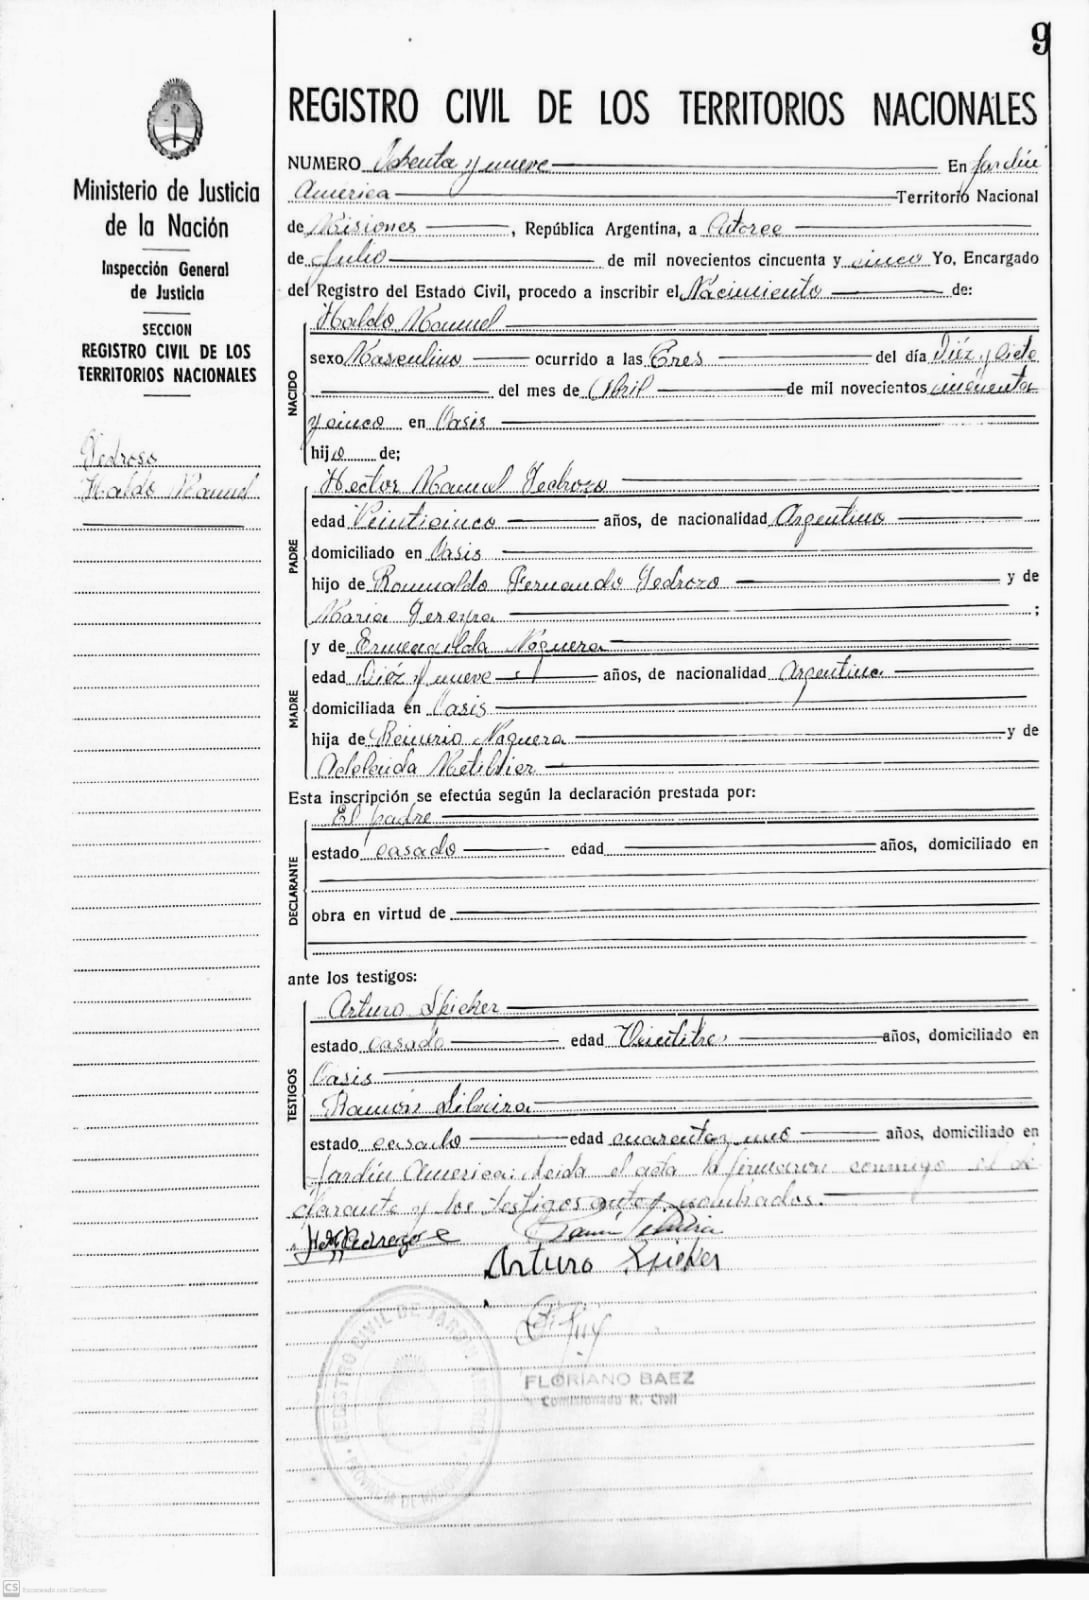 9
REGISTRO CIVIL DE LOS TERRITORIOS NACIONALES
Ministerio de Justicia
de la Nación
Inspección General
de Justicia
SECCION
REGISTRO CIVIL DE LOS
TERRITORIOS NACIONALES
Pedroso
Haldo Manuel
NUMERO Ochenta y nueve En Jardín
America Territorio Nacional
de Misiones, República Argentina, a Catorce
de Julio de mil novecientos cincuenta y cinco Yo, Encargado
del Registro del Estado Civil, procedo a inscribir el Nacimiento de:
NACIDO
Haldo Manuel
sexo Masculino ocurrido a las Tres del día Diéz y Siete
del mes de Abril de mil novecientos cincuenta
y cinco en Oasis
hijo de;
PADRE
Hector Manuel Pedrozo
edad Veinticinco años, de nacionalidad Argentino
domiciliado en Oasis
hijo de Romualdo Fernando Pedrozo y de
Maria Pereyra ;
MADRE
y de Ermenailda Noguera
edad Diéz y nueve años, de nacionalidad Argentina
domiciliada en Oasis
hija de Ramirio Noguera y de
Adeleuda
Esta inscripción se efectúa según la declaración prestada por:
DECLARANTE
El padre
estado casado edad años, domiciliado en
obra en virtud de
ante los testigos:
TESTIGOS
Arturo Spieker
estado casado edad Veintitres años, domiciliado en
Oasis
Ramón Silveira
estado casado edad cuarenta y uno años, domiciliado en
Jardín America: leida el acta la firmaron conmigo el de
clarante y los testigos antes nombrados.
Arturo Spieker
REGISTRO CIVIL DE JARDIN AMERICA
FLORIANO BAEZ
Comisionado R. Civil
CS Escaneado con CamScanner